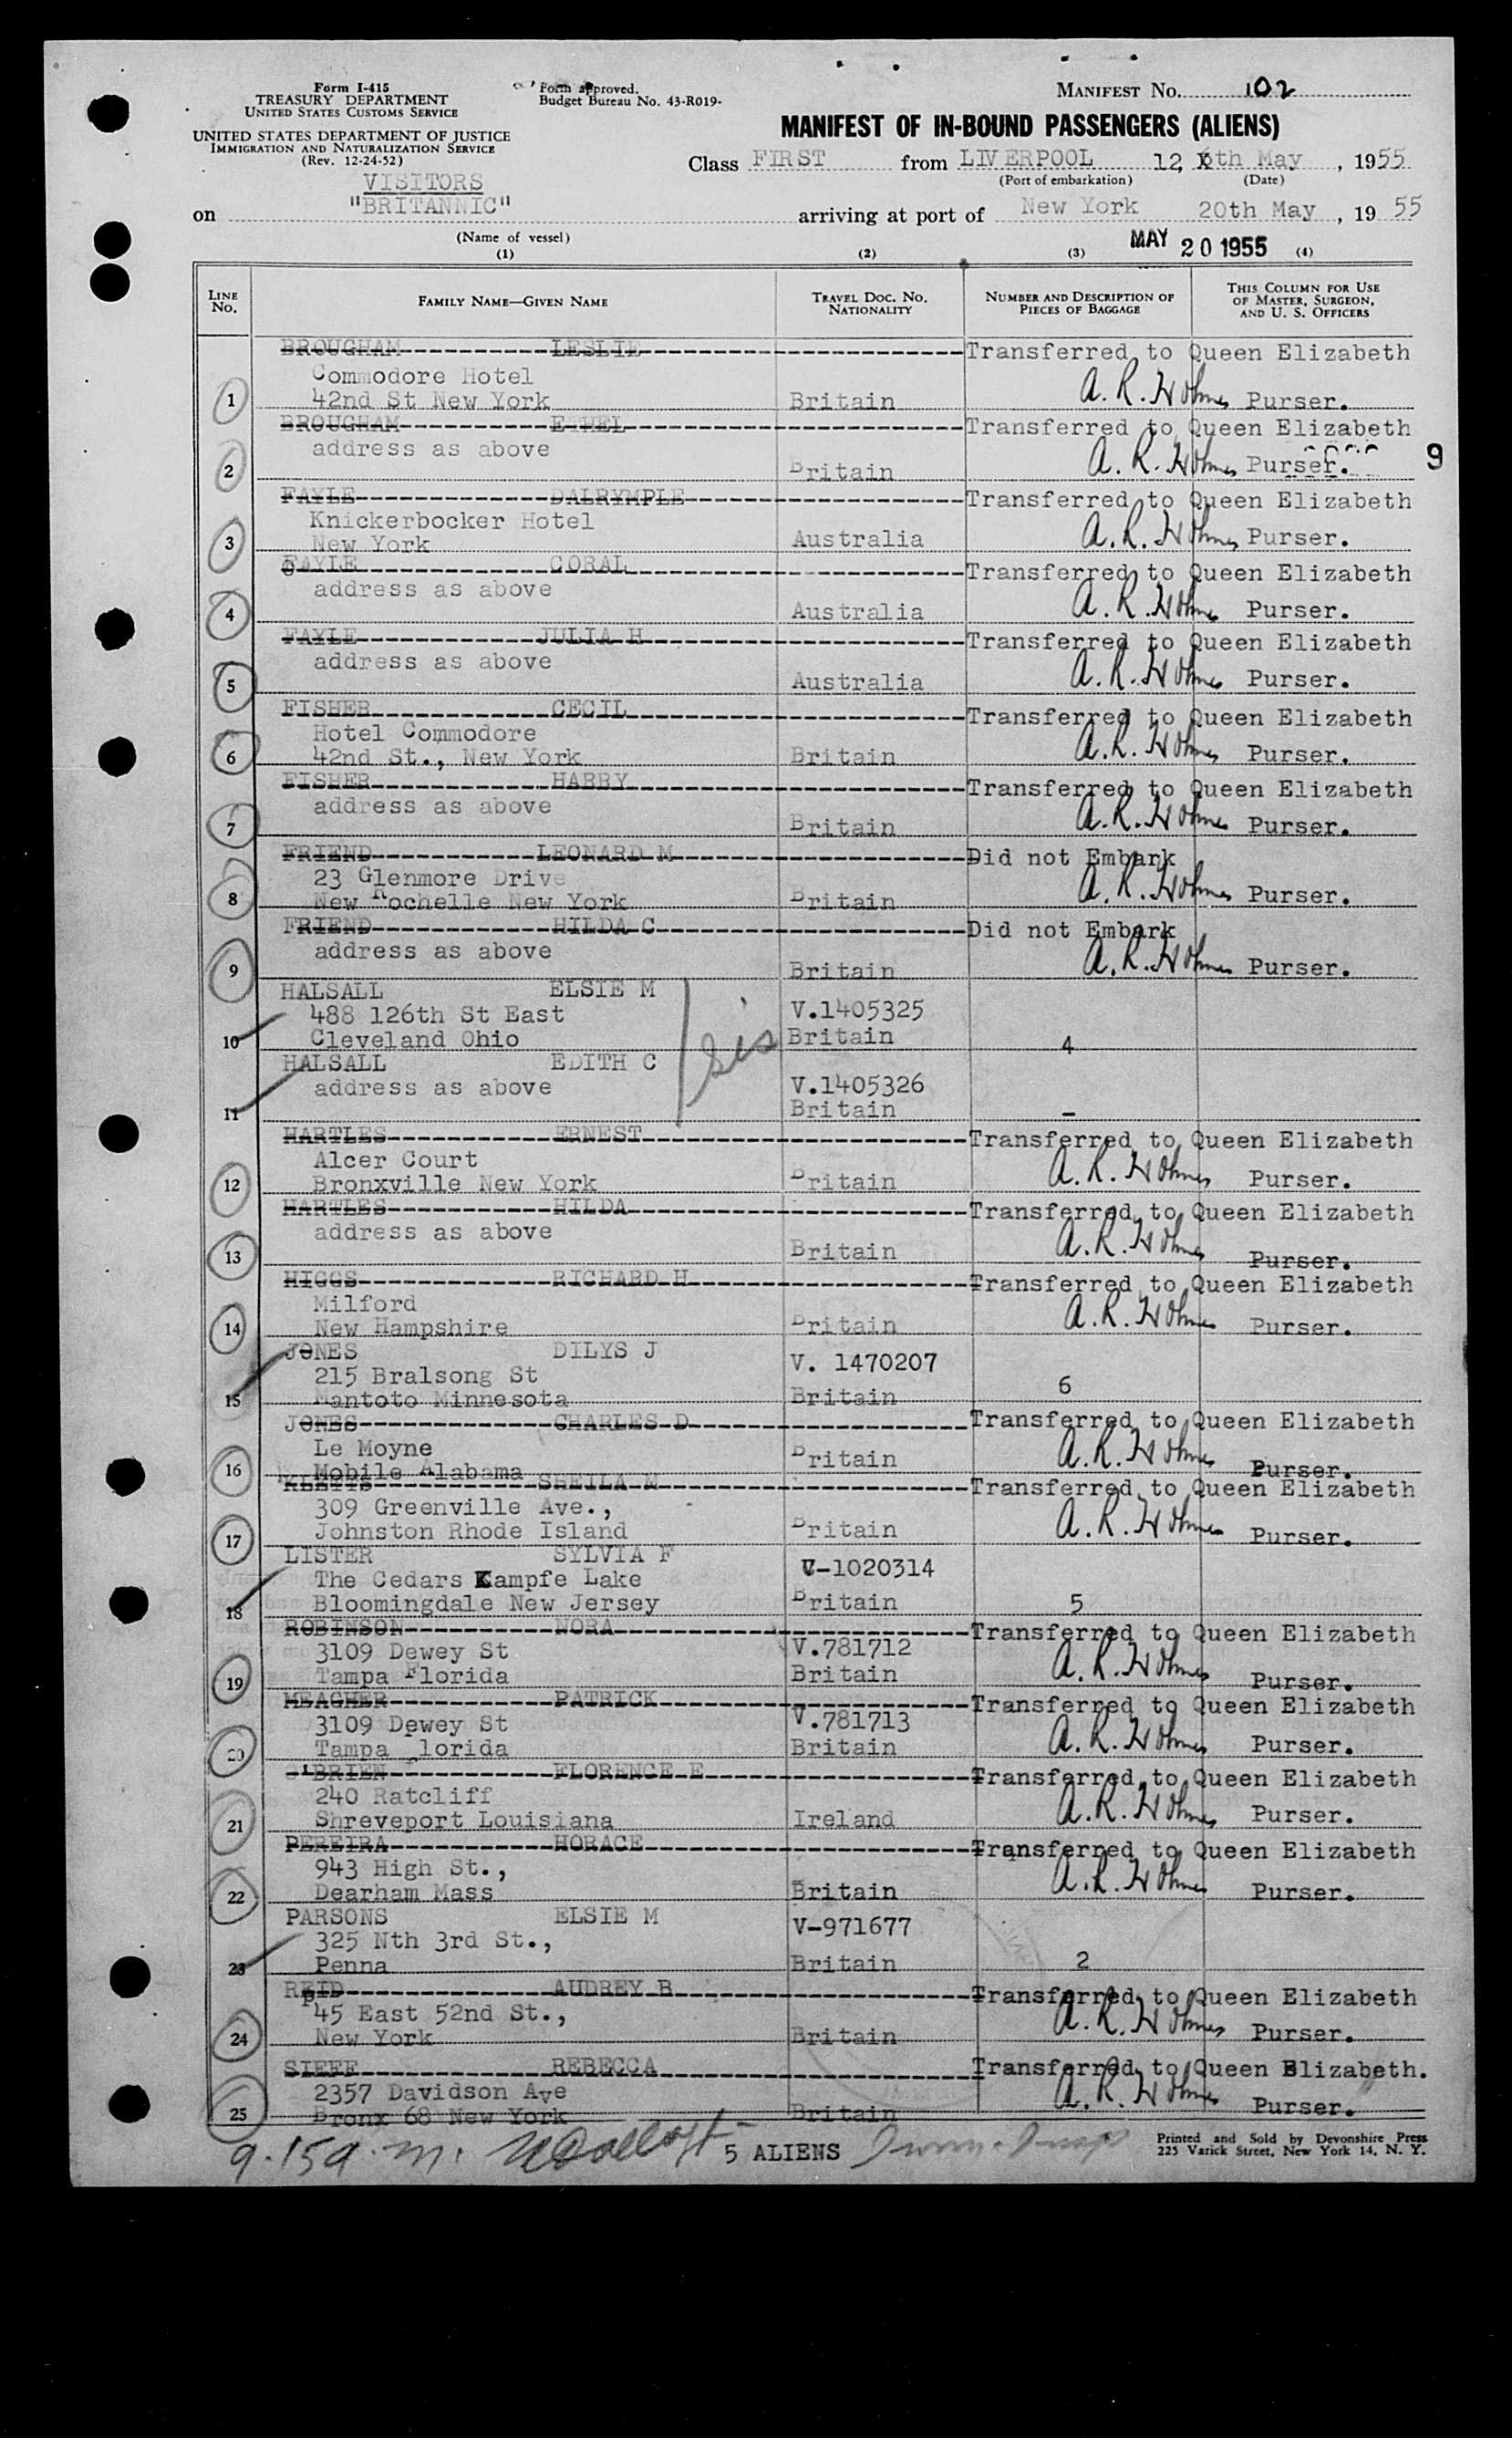 Form I-415
TREASURY DEPARTMENT
UNITED STATES CUSTOMS SERVICE
UNITED STATES DEPARTMENT OF JUSTICE
IMMIGRATION AND NATURALIZATION SERVICE
(Rev. 12-24-52)
Form approved.
Budget Bureau No. 43-R019-
MANIFEST NO. 102
MANIFEST OF IN-BOUND PASSENGERS (ALIENS)
Class FIRST from LIVERPOOL 12, th May, 1955
(Port of embarkation) (Date)
VISITORS
on "BRITANNIC" arriving at port of New York 20th May, 1955
(Name of vessel)
MAY 20 1955
(1) (2) (3) (4)
LINE NO. FAMILY NAME—GIVEN NAME TRAVEL DOC. NO. NATIONALITY NUMBER AND DESCRIPTION OF PIECES OF BAGGAGE THIS COLUMN FOR USE OF MASTER, SURGEON, AND U. S. OFFICERS
BROUGHAM LESLIE Transferred to Queen Elizabeth
Commodore Hotel
1 42nd St New York Britain A. R. Holmes Purser.
BROUGHAM ETHEL Transferred to Queen Elizabeth
address as above
2 Britain A. R. Holmes Purser. 9
FAYLE DALRYMPLE Transferred to Queen Elizabeth
Knickerbocker Hotel
3 New York Australia A. R. Holmes Purser.
FAYLE CORAL Transferred to Queen Elizabeth
address as above
4 Australia A. R. Holmes Purser.
FAYLE JULIA H Transferred to Queen Elizabeth
address as above
5 Australia A. R. Holmes Purser.
FISHER CECIL Transferred to Queen Elizabeth
Hotel Commodore
6 42nd St., New York Britain A. R. Holmes Purser.
FISHER HARRY Transferred to Queen Elizabeth
address as above
7 Britain A. R. Holmes Purser.
FRIEND LEONARD M Did not Embark
23 Glenmore Drive
8 New Rochelle New York Britain A. R. Holmes Purser.
FRIEND HILDA C Did not Embark
address as above
9 Britain A. R. Holmes Purser.
HALSALL ELSIE M
488 126th St East V.1405325
10 Cleveland Ohio Britain 4
sis
HALSALL EDITH C
address as above V.1405326
11 Britain -
HARTLES ERNEST Transferred to Queen Elizabeth
Alcer Court
12 Bronxville New York Britain A. R. Holmes Purser.
HARTLES HILDA Transferred to Queen Elizabeth
address as above
13 Britain A. R. Holmes Purser.
HIGGS RICHARD H Transferred to Queen Elizabeth
Milford
14 New Hampshire Britain A. R. Holmes Purser.
JONES DILYS J
215 Bralsong St V. 1470207
15 Mantoto Minnesota Britain 6
JONES CHARLES D Transferred to Queen Elizabeth
Le Moyne
16 Mobile Alabama Britain A. R. Holmes Purser.
SHEILA M Transferred to Queen Elizabeth
309 Greenville Ave.,
17 Johnston Rhode Island Britain A. R. Holmes Purser.
LISTER SYLVIA F
The Cedars Kampfe Lake V-1020314
18 Bloomingdale New Jersey Britain 5
ROBINSON NORA Transferred to Queen Elizabeth
3109 Dewey St V.781712
19 Tampa Florida Britain A. R. Holmes Purser.
MEAGHER PATRICK Transferred to Queen Elizabeth
3109 Dewey St V.781713
20 Tampa Florida Britain A. R. Holmes Purser.
O'BRIEN FLORENCE E Transferred to Queen Elizabeth
240 Ratcliff
21 Shreveport Louisiana Ireland A. R. Holmes Purser.
PEREIRA HORACE Transferred to Queen Elizabeth
943 High St.,
22 Dearham Mass Britain A. R. Holmes Purser.
PARSONS ELSIE M
325 Nth 3rd St., V-971677
23 Penna Britain 2
REID AUDREY B Transferred to Queen Elizabeth
45 East 52nd St.,
24 New York Britain A. R. Holmes Purser.
SIEFF REBECCA Transferred to Queen Elizabeth.
2357 Davidson Ave
25 Bronx 68 New York Britain A. R. Holmes Purser.
9.15 a.m. 5 ALIENS
Printed and Sold by Devonshire Press
225 Varick Street, New York 14, N. Y.